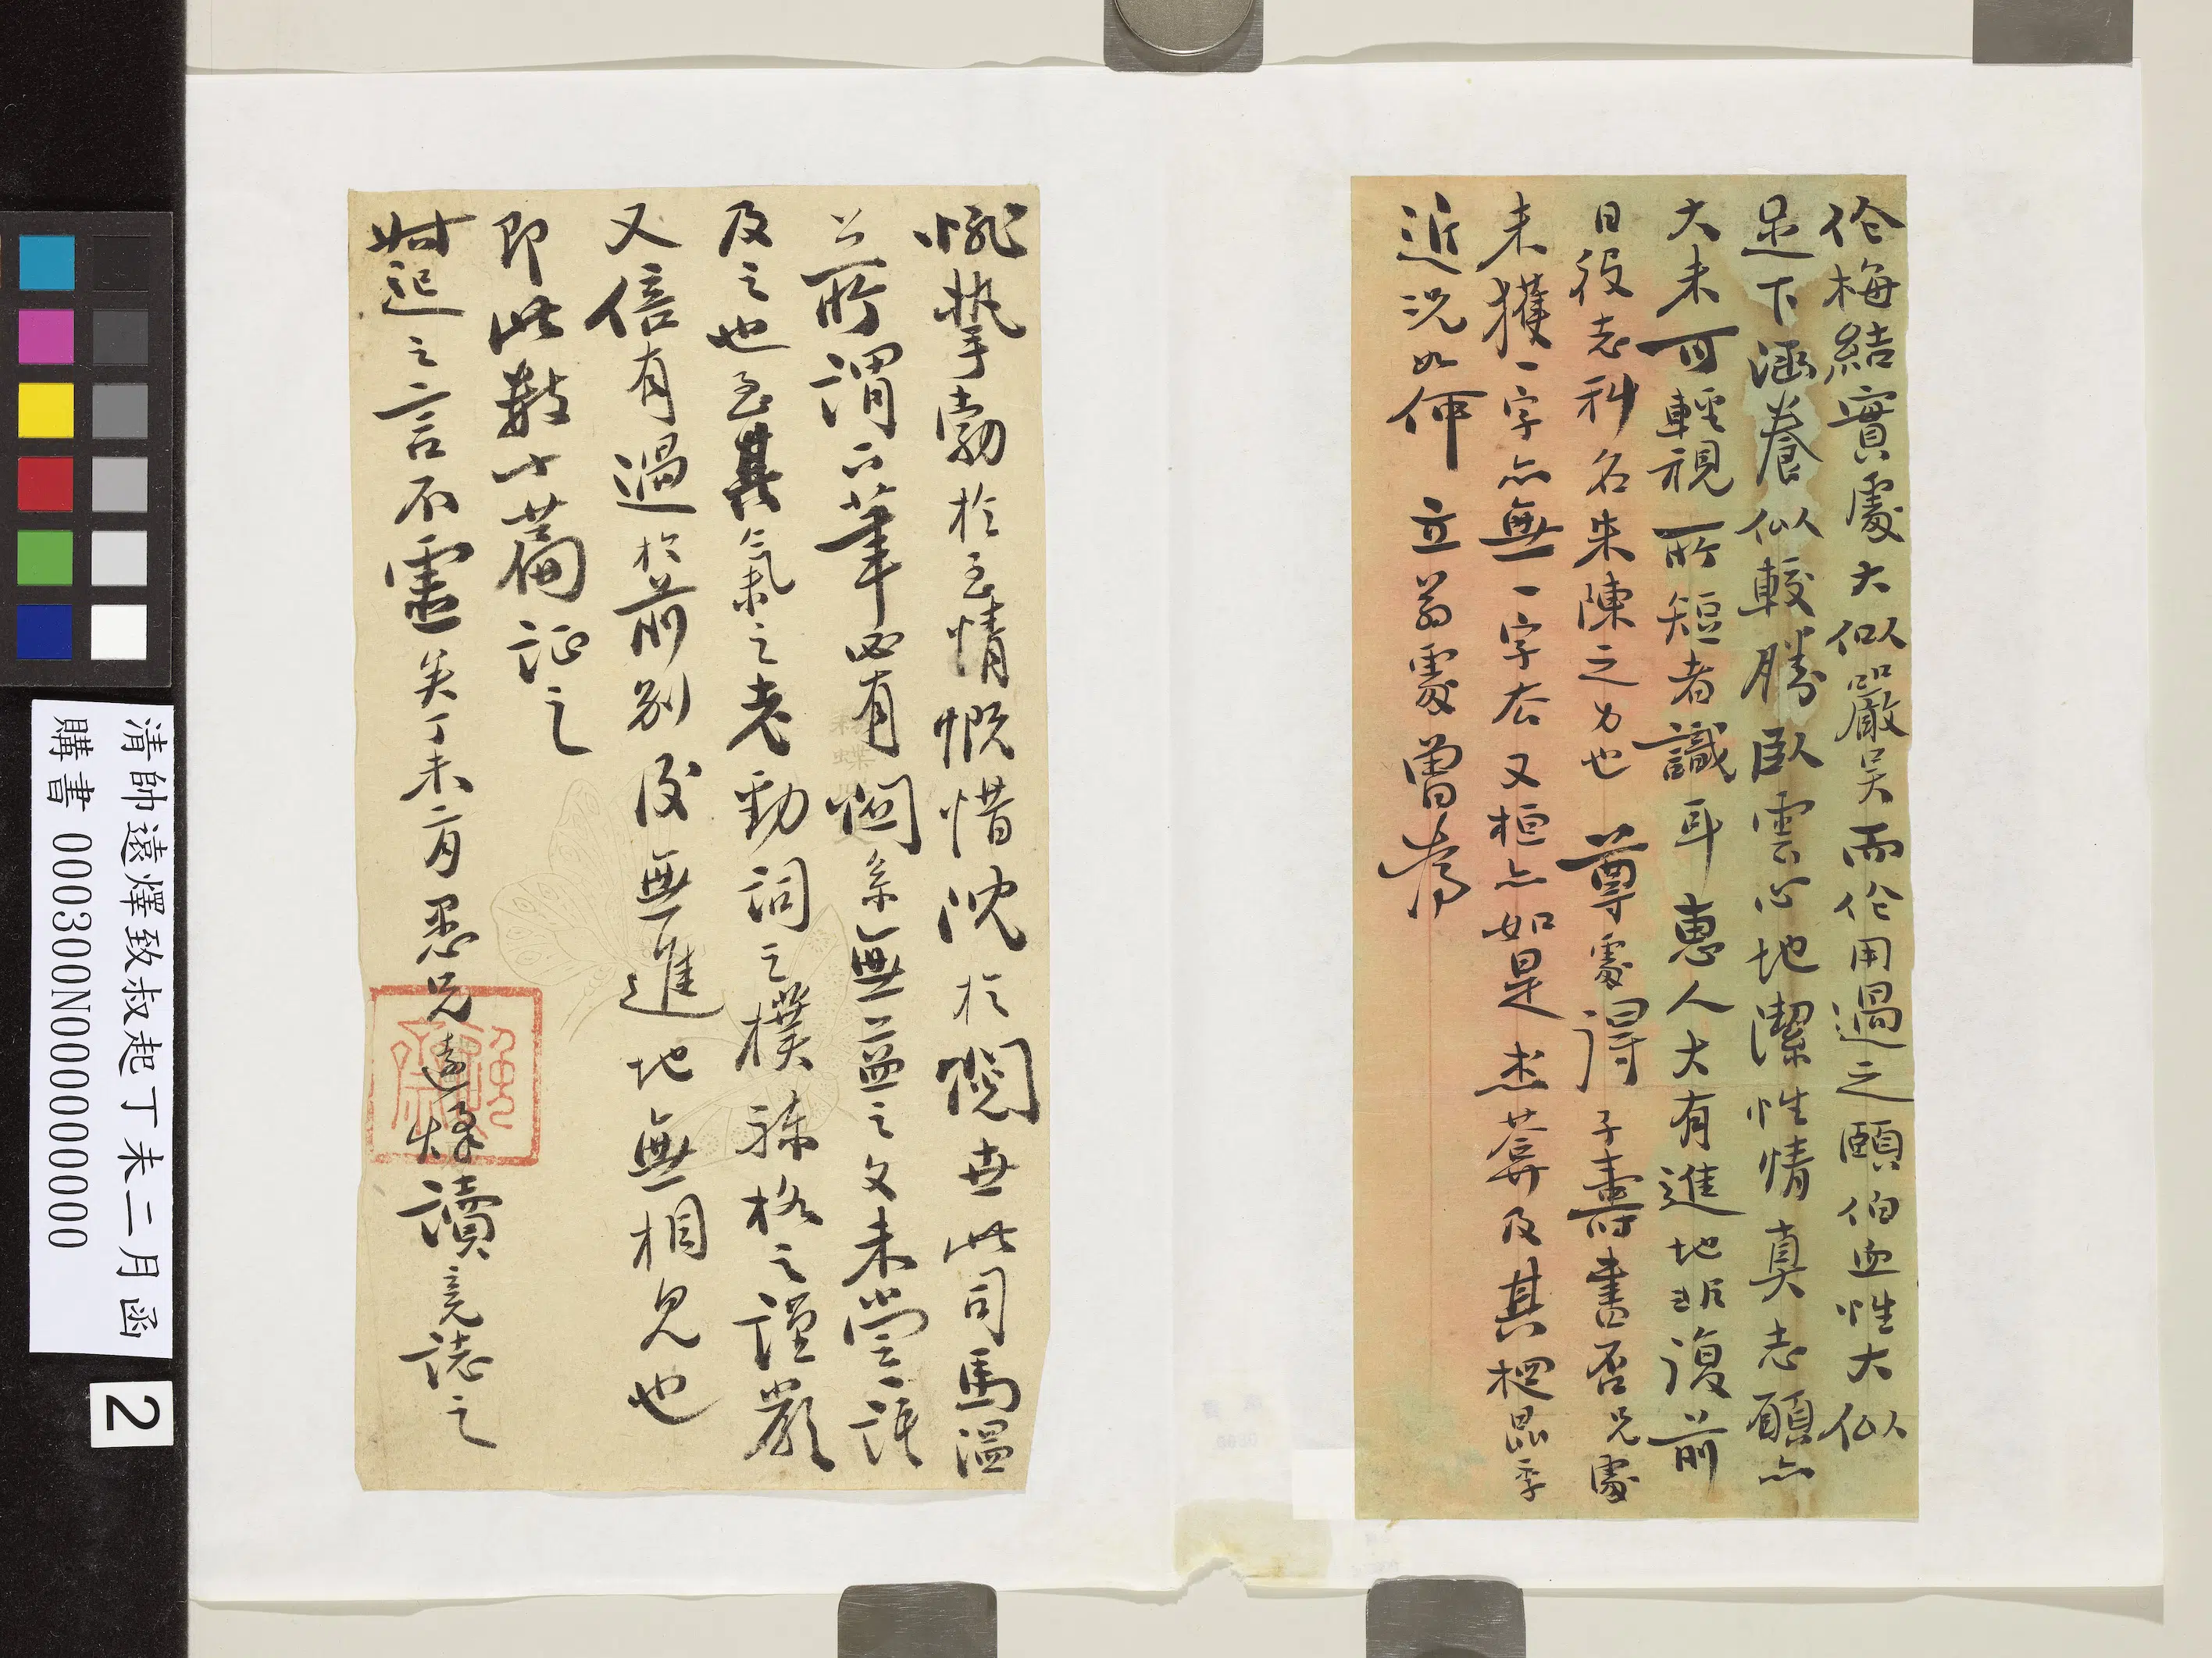 伦梅結實處大似嚴吴而伦用過之頤伯血性大似
足下涵養似較勝臥雲心地潔性情真志願亦
大未可輕視所短者識耳惠人大有進地非復前
日役志科名朱陳之力也 尊處得子壽書否兄處
未獲一字亦無一字去又桓亦如是 杰菴及其梱昆季
近況如何 立翁處曾寄
懇摯勃於至情慨惜沈於閱世此司馬溫
公所謂下筆必有關系無益之文未嘗語
及之也至其氣之老勁詞之樸穆格之謹嚴
又倍有過於前別後無進地無相見也
即此數十篇証之
叔起之言不虛矣丁未二月愚兄遠燡讀竟誌之
清帥遠燡致叔起丁未二月函
購書 000300N000000000
2